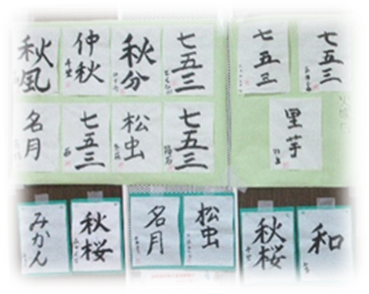 秋風
仲秋
秋分
七五三
七五三
七五三
名月
七五三
松虫
七五三
里芋
みかん
秋桜
名月
松虫
秋桜
和